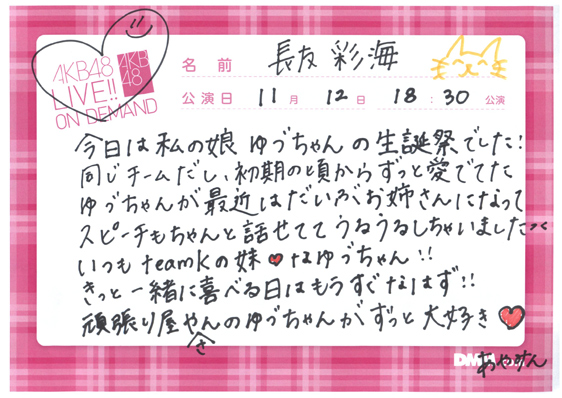 AKB48
LIVE!!
ON DEMAND
AKB
48
名前 長友 彩海
公演日 11月 12日 18:30 公演
今日は私の娘 ゆづちゃんの生誕祭でした!
同じチームだし、初期の頃からずっと愛でてた
ゆづちゃんが最近はだいぶお姉さんになって
スピーチもちゃんと話せててうるうるしちゃいました
いつもteamKの妹♥なゆづちゃん!!
きっと一緒に喜べる日はもうすぐなはず!!
頑張り屋さんのゆづちゃんがずっと大好き♥
DMM
あやみん